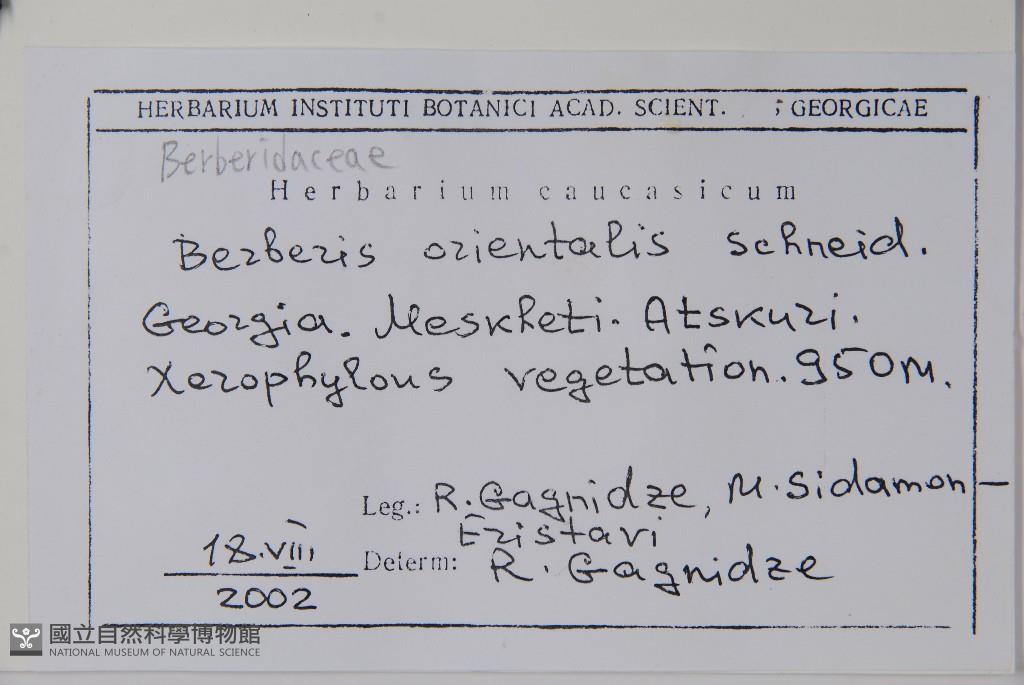 HERBARIUM INSTITUTI BOTANICI ACAD. SCIENT. ; GEORGICAE
Berberidaceae
Herbarium caucasicum
Berberis orientalis Schneid.
Georgia. Meskheti. Atskuri.
Xerophylous vegetation. 950 m.
Leg.: R. Gagnidze, M. Sidamon-
Eristavi
18.VIII
2002
Determ: R. Gagnidze
國立自然科學博物館
NATIONAL MUSEUM OF NATURAL SCIENCE